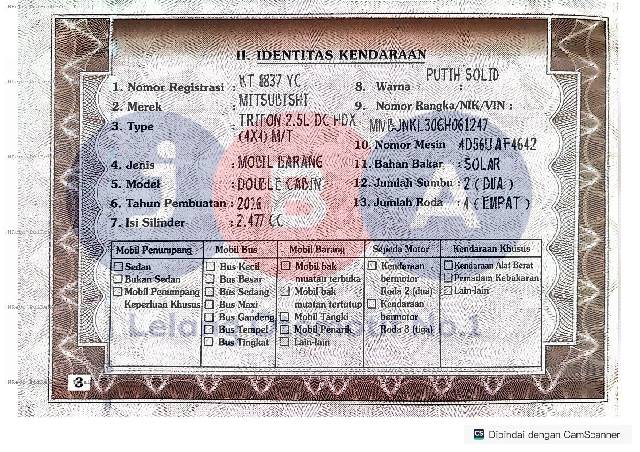 II. IDENTITAS KENDARAAN
1. Nomor Registrasi : KT 8837 YC
2. Merek : MITSUBISHI
3. Type : TRITON 2.5L DC HDX
(4X4) M/T
4. Jenis : MOBIL BARANG
5. Model : DOUBLE CABIN
6. Tahun Pembuatan : 2016
7. Isi Silinder : 2.477 CC
8. Warna : PUTIH SOLID
9. Nomor Rangka/NIK/VIN :
MMBJNKL30GH061247
10. Nomor Mesin 4D56UAF4642
11. Bahan Bakar : SOLAR
12. Jumlah Sumbu : 2 ( DUA )
13. Jumlah Roda : 4 ( EMPAT )
Mobil Penumpang
Sedan
Bukan Sedan
Mobil Penumpang
Keperluan Khusus
Mobil Bus
Bus Kecil
Bus Besar
Bus Sedang
Bus Maxi
Bus Gandeng
Bus Tempel
Bus Tingkat
Mobil Barang
Mobil bak
muatan terbuka
Mobil bak
muatan tertutup
Mobil Tangki
Mobil Penarik
Lain-lain
Sepeda Motor
Kendaraan
bermotor
Roda 2 (dua)
Kendaraan
bermotor
Roda 3 (tiga)
Kendaraan Khusus
Kendaraan Alat Berat
Pemadam Kebakaran
Lain-lain
iBA
3
CS Dipindai dengan CamScanner